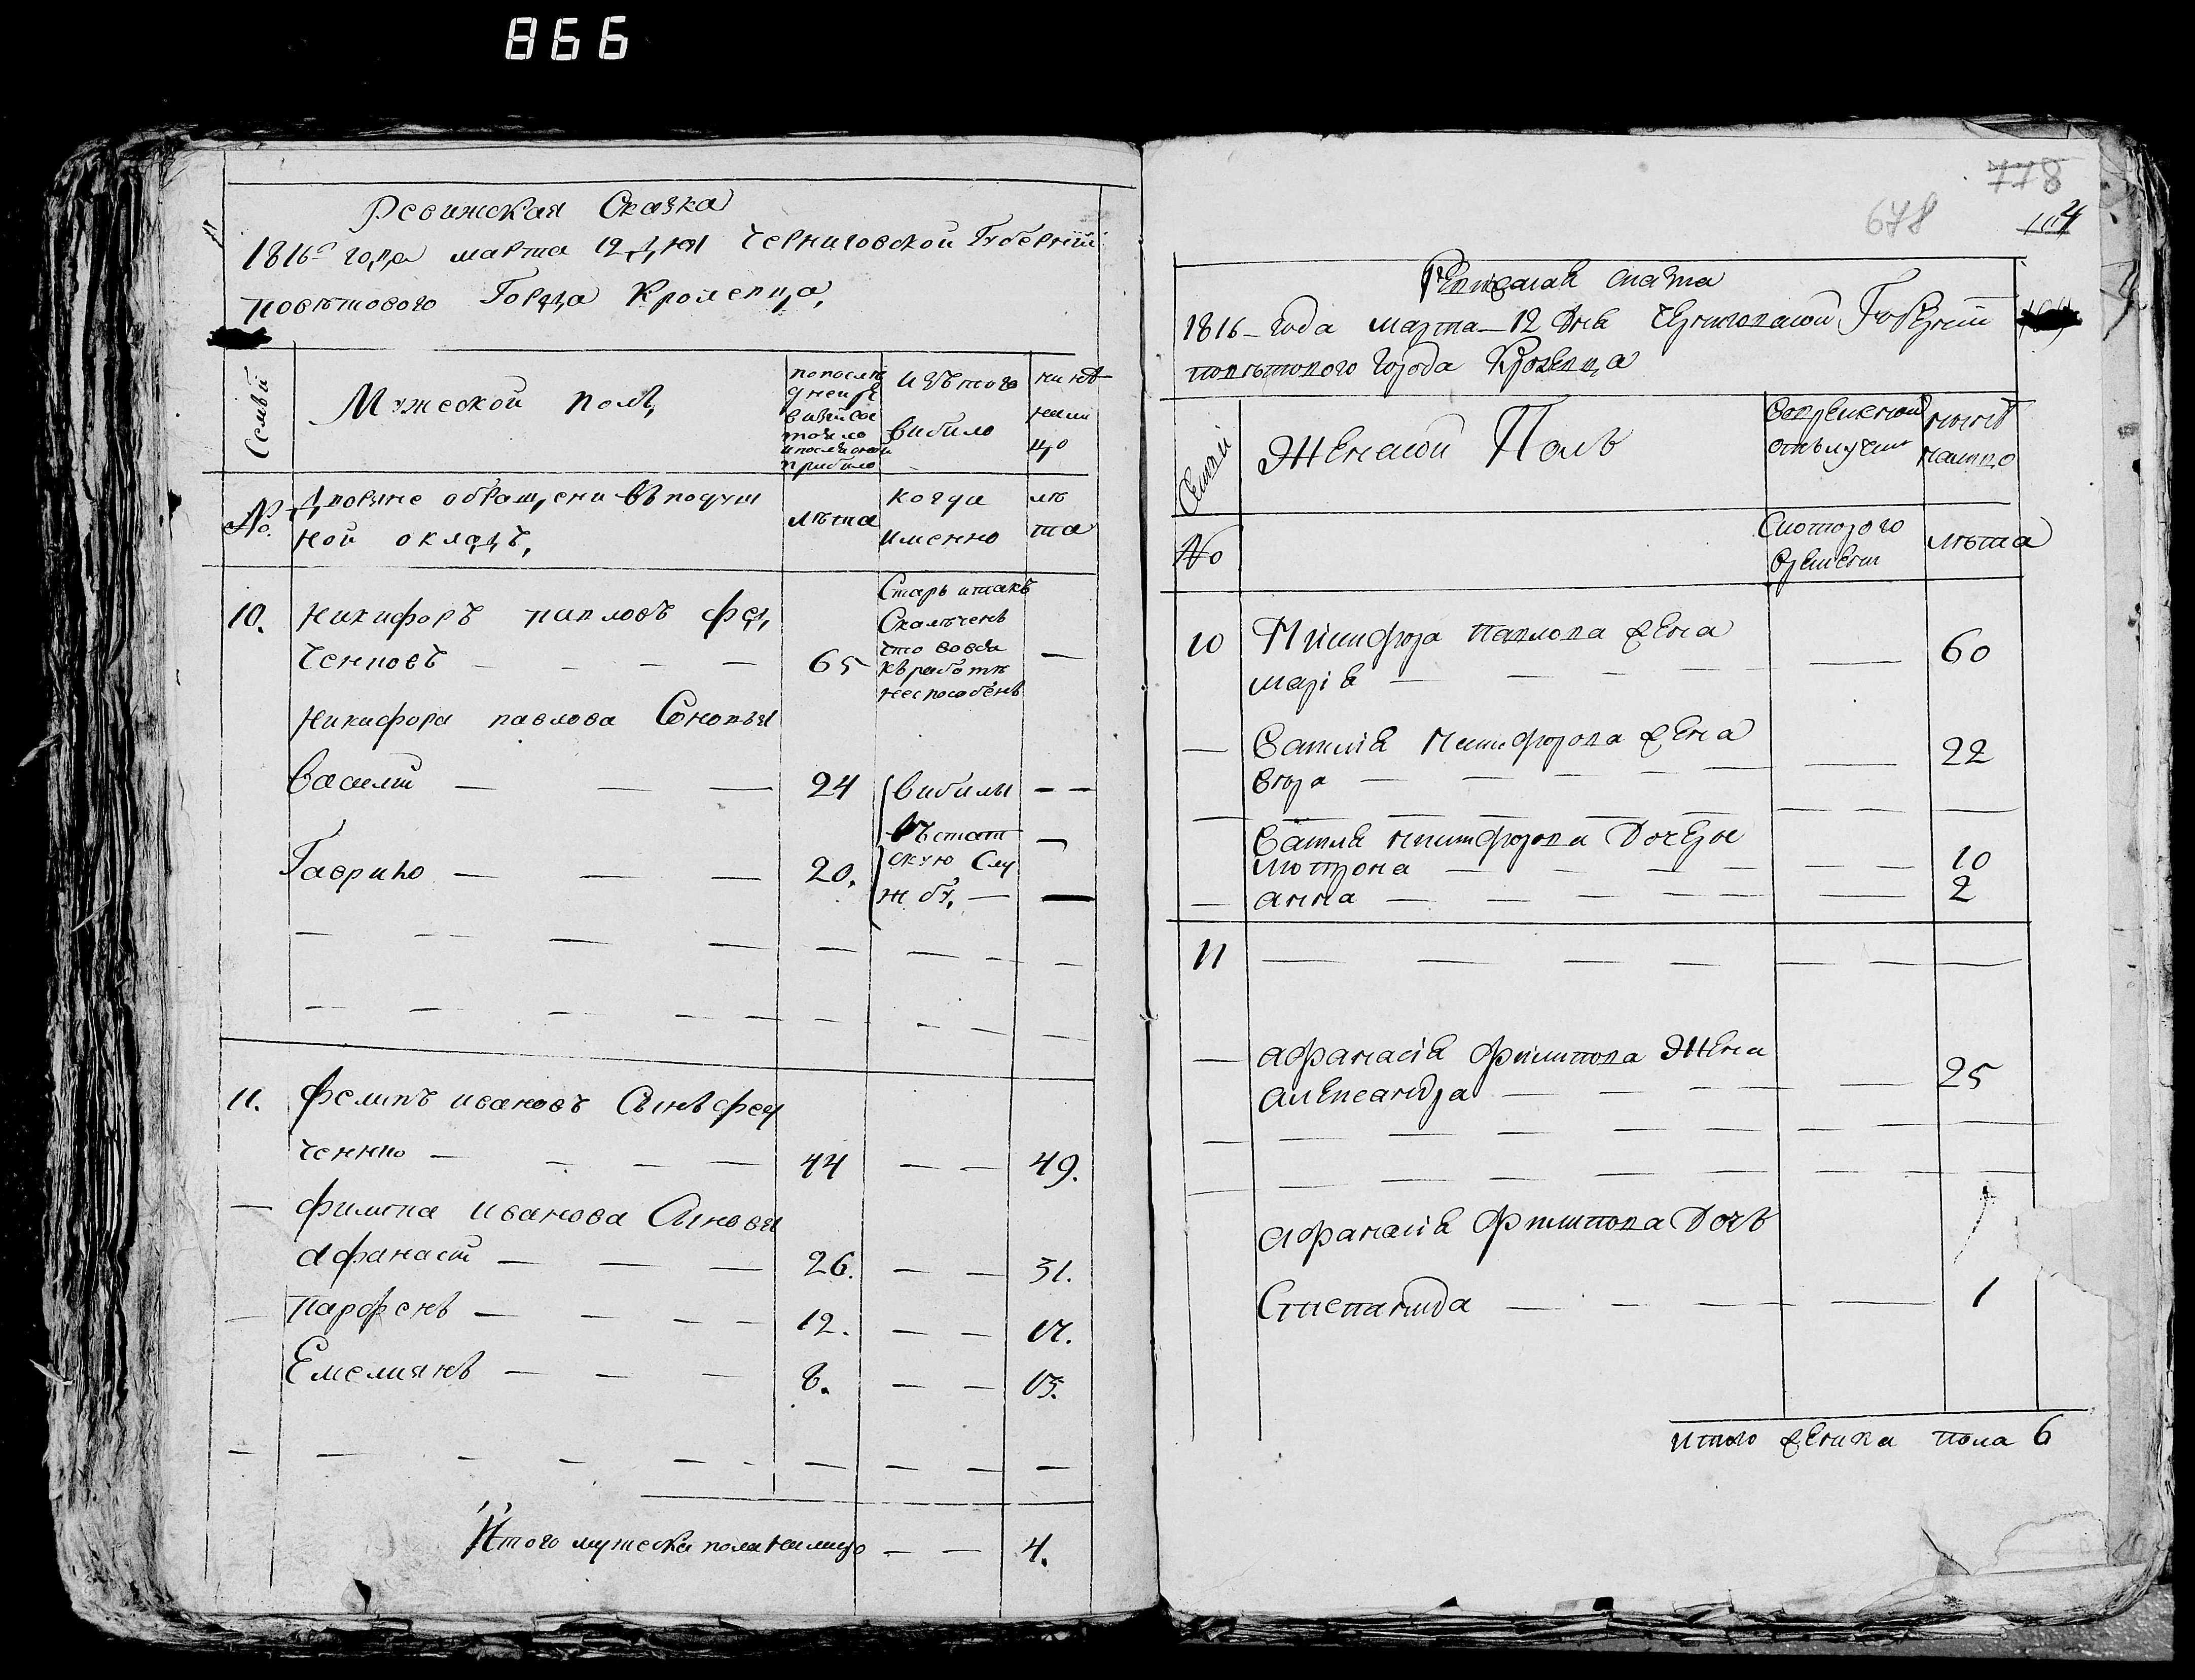 866
Ревижская Сказка
1816г года марта 12 дня Черниговской Губернїи
повѣтового Города Кролевца,
Семьи
Мужеской полъ,
попослѣ
дней ре
визїи сос
тояло
и после оной
прибило
изъ того
вибило
нинѣ
нали
цо
№.
Дворяне обращени въ подуш
ной окладъ,
лѣта
когда
именно
лѣ
та
10.
Никифоръ павловъ Фед,
ченковъ — — — —
65
Старъ и такъ
Скалѣченъ
что вовся
къ работѣ
неспособенъ
—
Никифора павлова Синовья
Василїй — — —
24
вибили
— —
въ стат
скую Слу
жбу, —
—
Гаврило — — —
20.
—
11.
Фелипъ ивановъ Синъ Фед
ченко — — — —
44
— —
49.
— Филипа иванова Синовя
Афанасїй — — —
26.
— —
31.
— Парфенъ — — — —
12.
— —
17.
Емелиянъ — — —
8.
— —
13.
Итого мужеска пола налицо — —
4.
778
678
104
Ревижская сказка
1816 — года марта — 12 Дня Черниговской Губернїи
повѣтового города Кролевца
Семьи
Женской Полъ
Во временной
отълучки
нинѣ
налицо
№
Скоторого
времени
лѣта
10
Никифора Павлова жена
марїя — — — —
60
— Василия Никифорова жена
— — — — —
22
Василя Никифорова Дочеры
Мотрона — — — —
10
— анна — — — —
2
11
— афанасїя Филипова Жена
Александра — — —
25
афанасїя Филипова Дочь
Степанида — — — —
1
итого женска пола 6